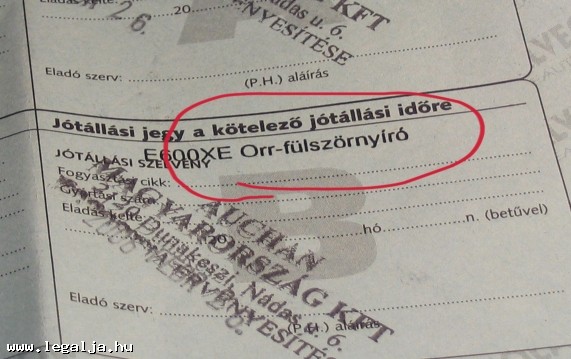 20
Nádas u. 6.
KFT
ÉNYESÍTÉSE
Eladó szerv:
(P.H.) aláírás
Jótállási jegy a kötelező jótállási időre
E600XE Orr-fülszőrnyíró
JÓTÁLLÁSI SZELVÉNY
Fogyasztási cikk:
Gyártási szám:
Eladás kelte: 20 hó n. (betűvel)
AUCHAN
MAGYARORSZÁG KFT
Dunakeszi, Nádas u. 6.
B
Eladó szerv:
(P.H.) aláírás
www.legalja.hu